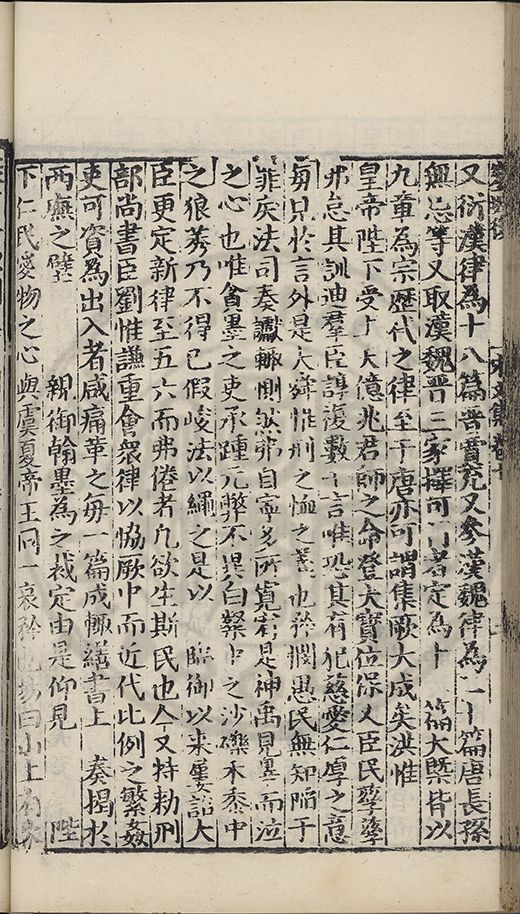 又衍漢律為十八篇晉賈充又參漢魏律為二十篇唐長孫
無忌等又取漢魏晉三家擇可行者定為十 篇大槩皆以
九章為宗歷代之律至于唐亦可謂集厥大成矣洪惟
皇帝陛下受上天億兆君師之命登大寶位保乂臣民孳孳
弗怠其訓迪羣臣諄復數千言唯恐其有犯慈愛仁厚之意
每見於言外是大舜惟刑之恤之義也矜憫愚民無知陷于
罪戾法司奏讞輒惻然弗自寧多所寬宥是神禹見辜而泣
之心也唯貪墨之吏承踵元弊不異白粲中之沙礫禾黍中
之稂莠乃不得已假峻法以繩之是以 臨御以來屢詔大
臣更定新律至五六而弗倦者凡欲生斯民也今又特勑刑
部尚書臣劉惟謙重會衆律以協厥中而近代比例之繁姦
吏可資為出入者咸痛革之每一篇成輒繕書上 奏揭於
兩廡之壁 親御翰墨為之裁定由是仰見 陛
下仁民愛物之心與虞夏帝王同一哀矜也易曰山上有火